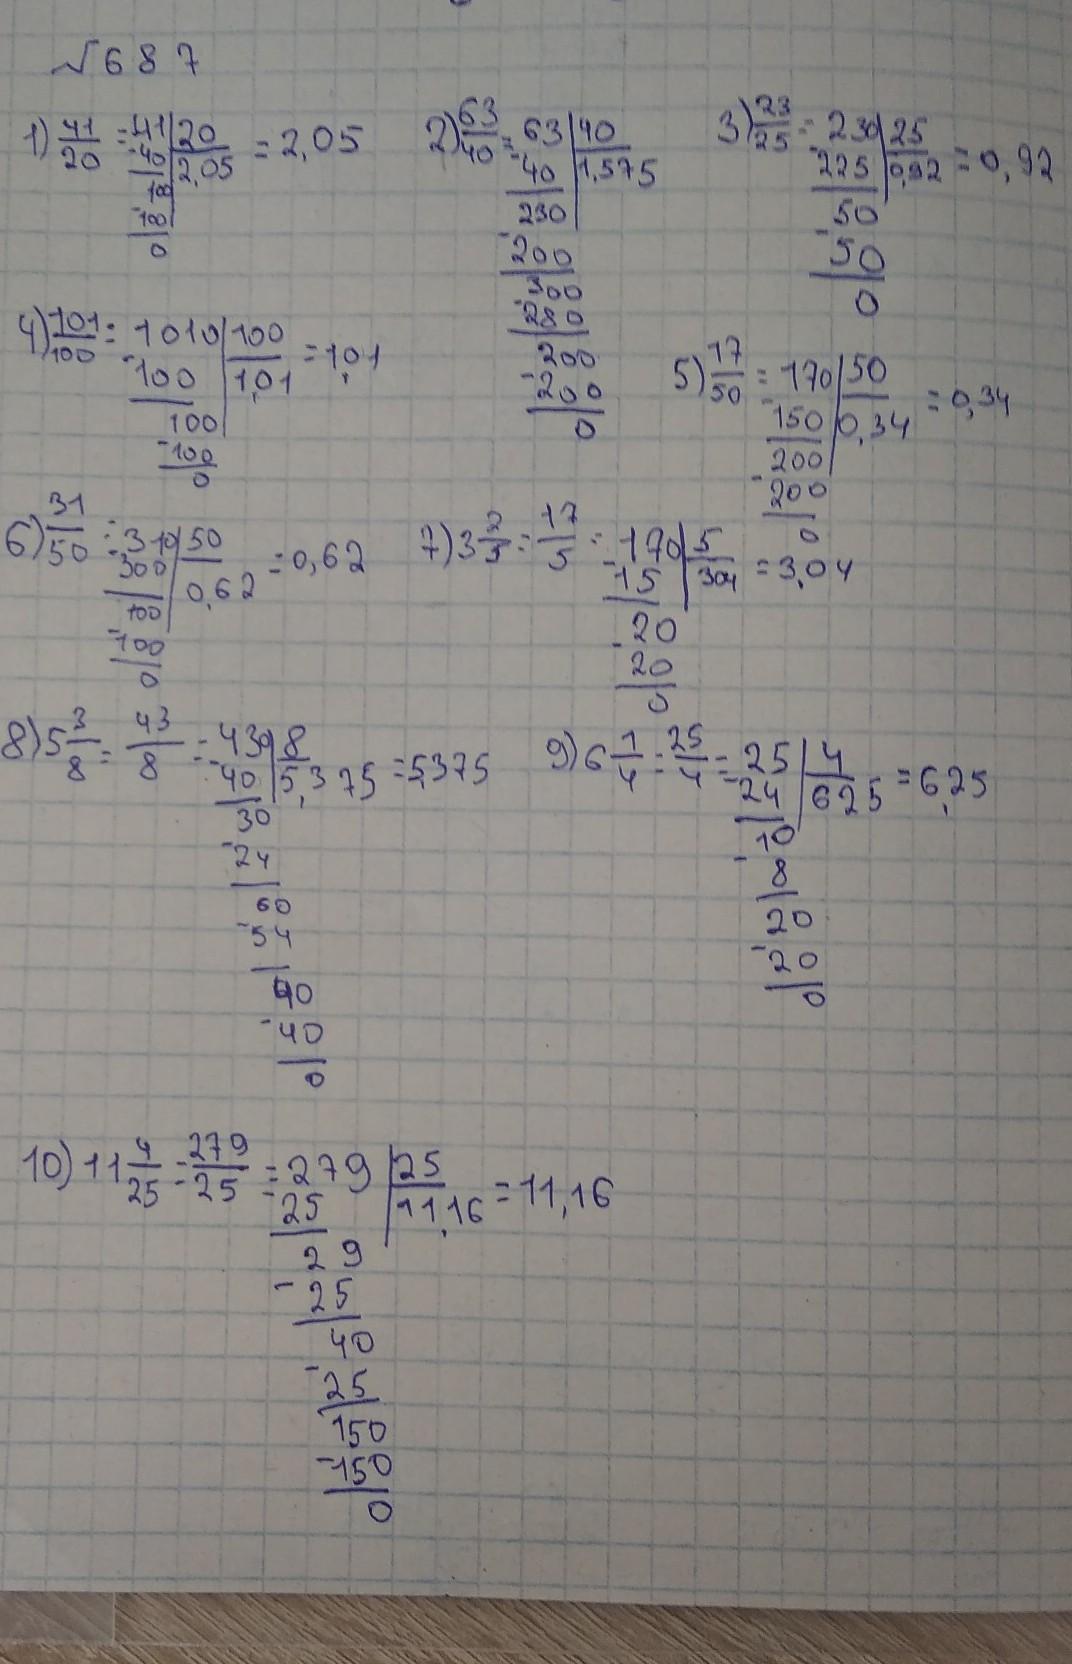 √687
1) 41/20 = 41 | 20 = 2,05
-40 | 2,05
-40
0
2) 63/40 = 63 | 40
-40 | 1,575
230
-200
300
-280
200
-200
0
3) 23/25 = 230 | 25 = 0,92
-225 | 0,92
50
-50
0
4) 101/100 = 1010 | 100 = 1,01
-100 | 1,01
100
-100
0
5) 17/50 = 170 | 50 = 0,34
-150 | 0,34
200
-200
0
6) 31/50 = 310 | 50 = 0,62
-300 | 0,62
100
-100
0
7) 3 2/5 = 17/5 = 170 | 5 = 3,04
-15 | 304
20
-20
0
8) 5 3/8 = 43/8 = 430 | 8 = 5,375
-40 | 5,375
30
-24
60
-54
40
-40
0
9) 6 1/4 = 25/4 = 25 | 4 = 6,25
-24 | 625
10
-8
20
-20
0
10) 11 4/25 = 279/25 = 279 | 25 = 11,16
-25 | 11,16
29
-25
40
-25
150
-150
0